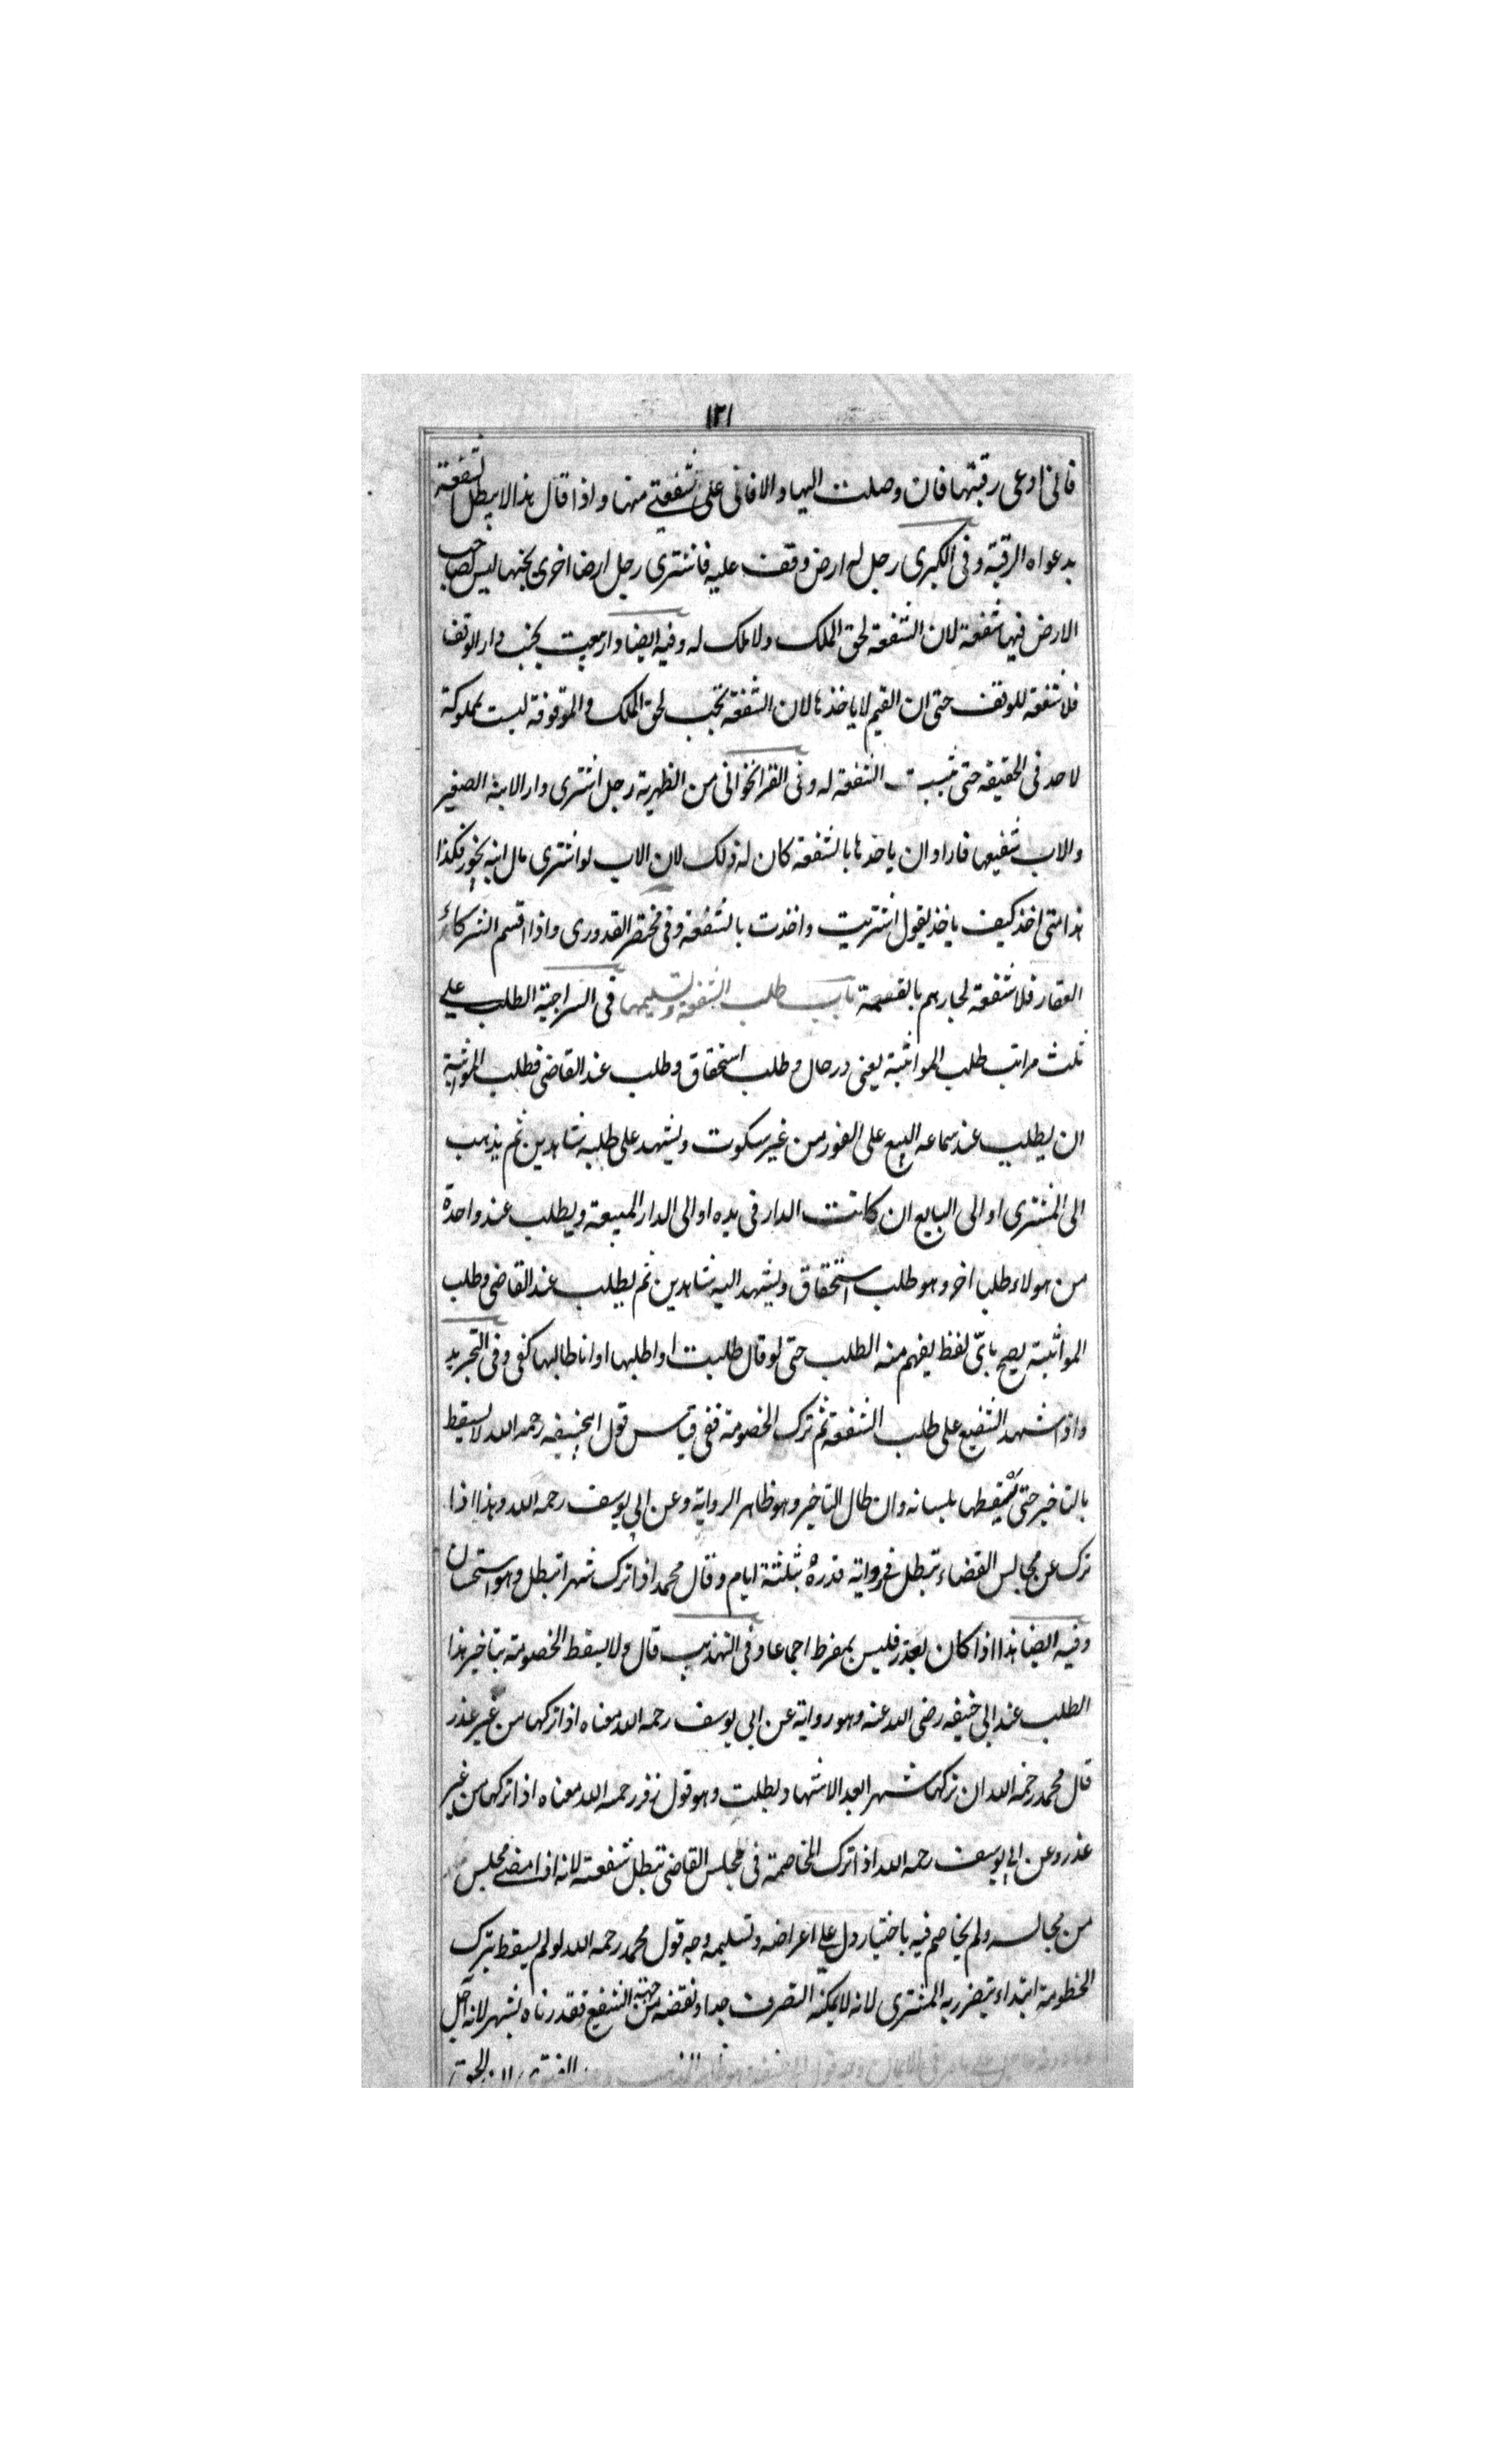 ١٢١
فانى ادعى رقبتها فان وصلت اليها والا فانى على شفعتى منها واذا قال هذا لا يبطل شفعته
بدعواه الرقبة وفى الكبرى رجل له ارض وقف عليه فاشترى رجل ارضا اخرى بجنبها ليس لصاحب
الارض فيها شفعة لان الشفعة لحق الملك ولا ملك له وفيه ايضا دار بيعت بجنب دار الوقف
فلا شفعة للوقف حتى ان القيم لا ياخذها لان الشفعة تجب لحق الملك والموقوفة ليست بمملوكة
لاحد فى الحقيقه حتى تثبت الشفعة له وفى القراخوانى من الظهرية رجل اشترى دار الابنه الصغير
والاب شفيعها فاراد ان ياخذها بالشفعة كان له ذلك لان الاب لو اشترى مال ابنه يجوز فكذا
هذا متى اخذ كيف ياخذ يقول اشتريت واخذت بالشفعة وفى مختصر القدورى واذا اقسم الشركاء
العقار فلا شفعة لجارهم بالقسمة باب طلب الشفعة وتسليمها فى السراجية الطلب على
ثلث مراتب طلب المواثبة يعنى درحال وطلب استحقاق وطلب عند القاضى فطلب المواثبة
ان يطلب عند سماعه البيع على الفور من غير سكوت ويشهد على طلبه شاهدين ثم يذهب
الى المشترى او الى البايع ان كانت الدار فى يده او الى الدار المبيعة ويطلب عند واحدة
من هولاء طلبا اخر وهو طلب استحقاق ويشهد اليه شاهدين ثم يطلب عند القاضى وطلب
المواثبة يصح باىّ لفظ يفهم منه الطلب حتى لو قال طلبت او اطلبها او انا طالبها كفى وفى التجريد
واذا شهد الشفيع على طلب الشفعة ثم ترك الخصومة ففى قياس قول ابيحنيفه رحمه الله لا يسقط
بالتاخير حتى يسقطها بلسانه وان طال التاخير وهو ظاهر الرواية وعن ابى يوسف رحمه الله وهذا اذا
ترك عن مجالس القضاء تبطل فى رواية قدره بثلثة ايام وقال محمد اذا ترك شهرا تبطل وهو استحسان
وفيه ايضا هذا اذا كان بعذر فليس بمفرط اجماعا وفى التهذيب قال ولا يسقط الخصومة بتاخير هذا
الطلب عند ابى حنيفه رضى الله عنه وهو رواية عن ابى يوسف رحمه الله معناه اذا تركها من غير عذر
قال محمد رحمه الله ان تركها شهرا بعد الاشهاد بطلت وهو قول زفر رحمه الله معناه اذا تركها من غير
عذر وعن ابى يوسف رحمه الله اذا ترك المخاصمة فى مجلس القاضى تبطل شفعته لانه اذا مضى مجلس
من مجالسه ولم يخاصم فيه باختيار دل على اعراضه وتسليمه وجه قول محمد رحمه الله لو لم يسقط بترك
الخطومة ابتداء يتضرر به المشترى لانه لا يمكنه التصرف حدا ونقضه من جهة الشفيع فقدرناه بشهر لانه اجل